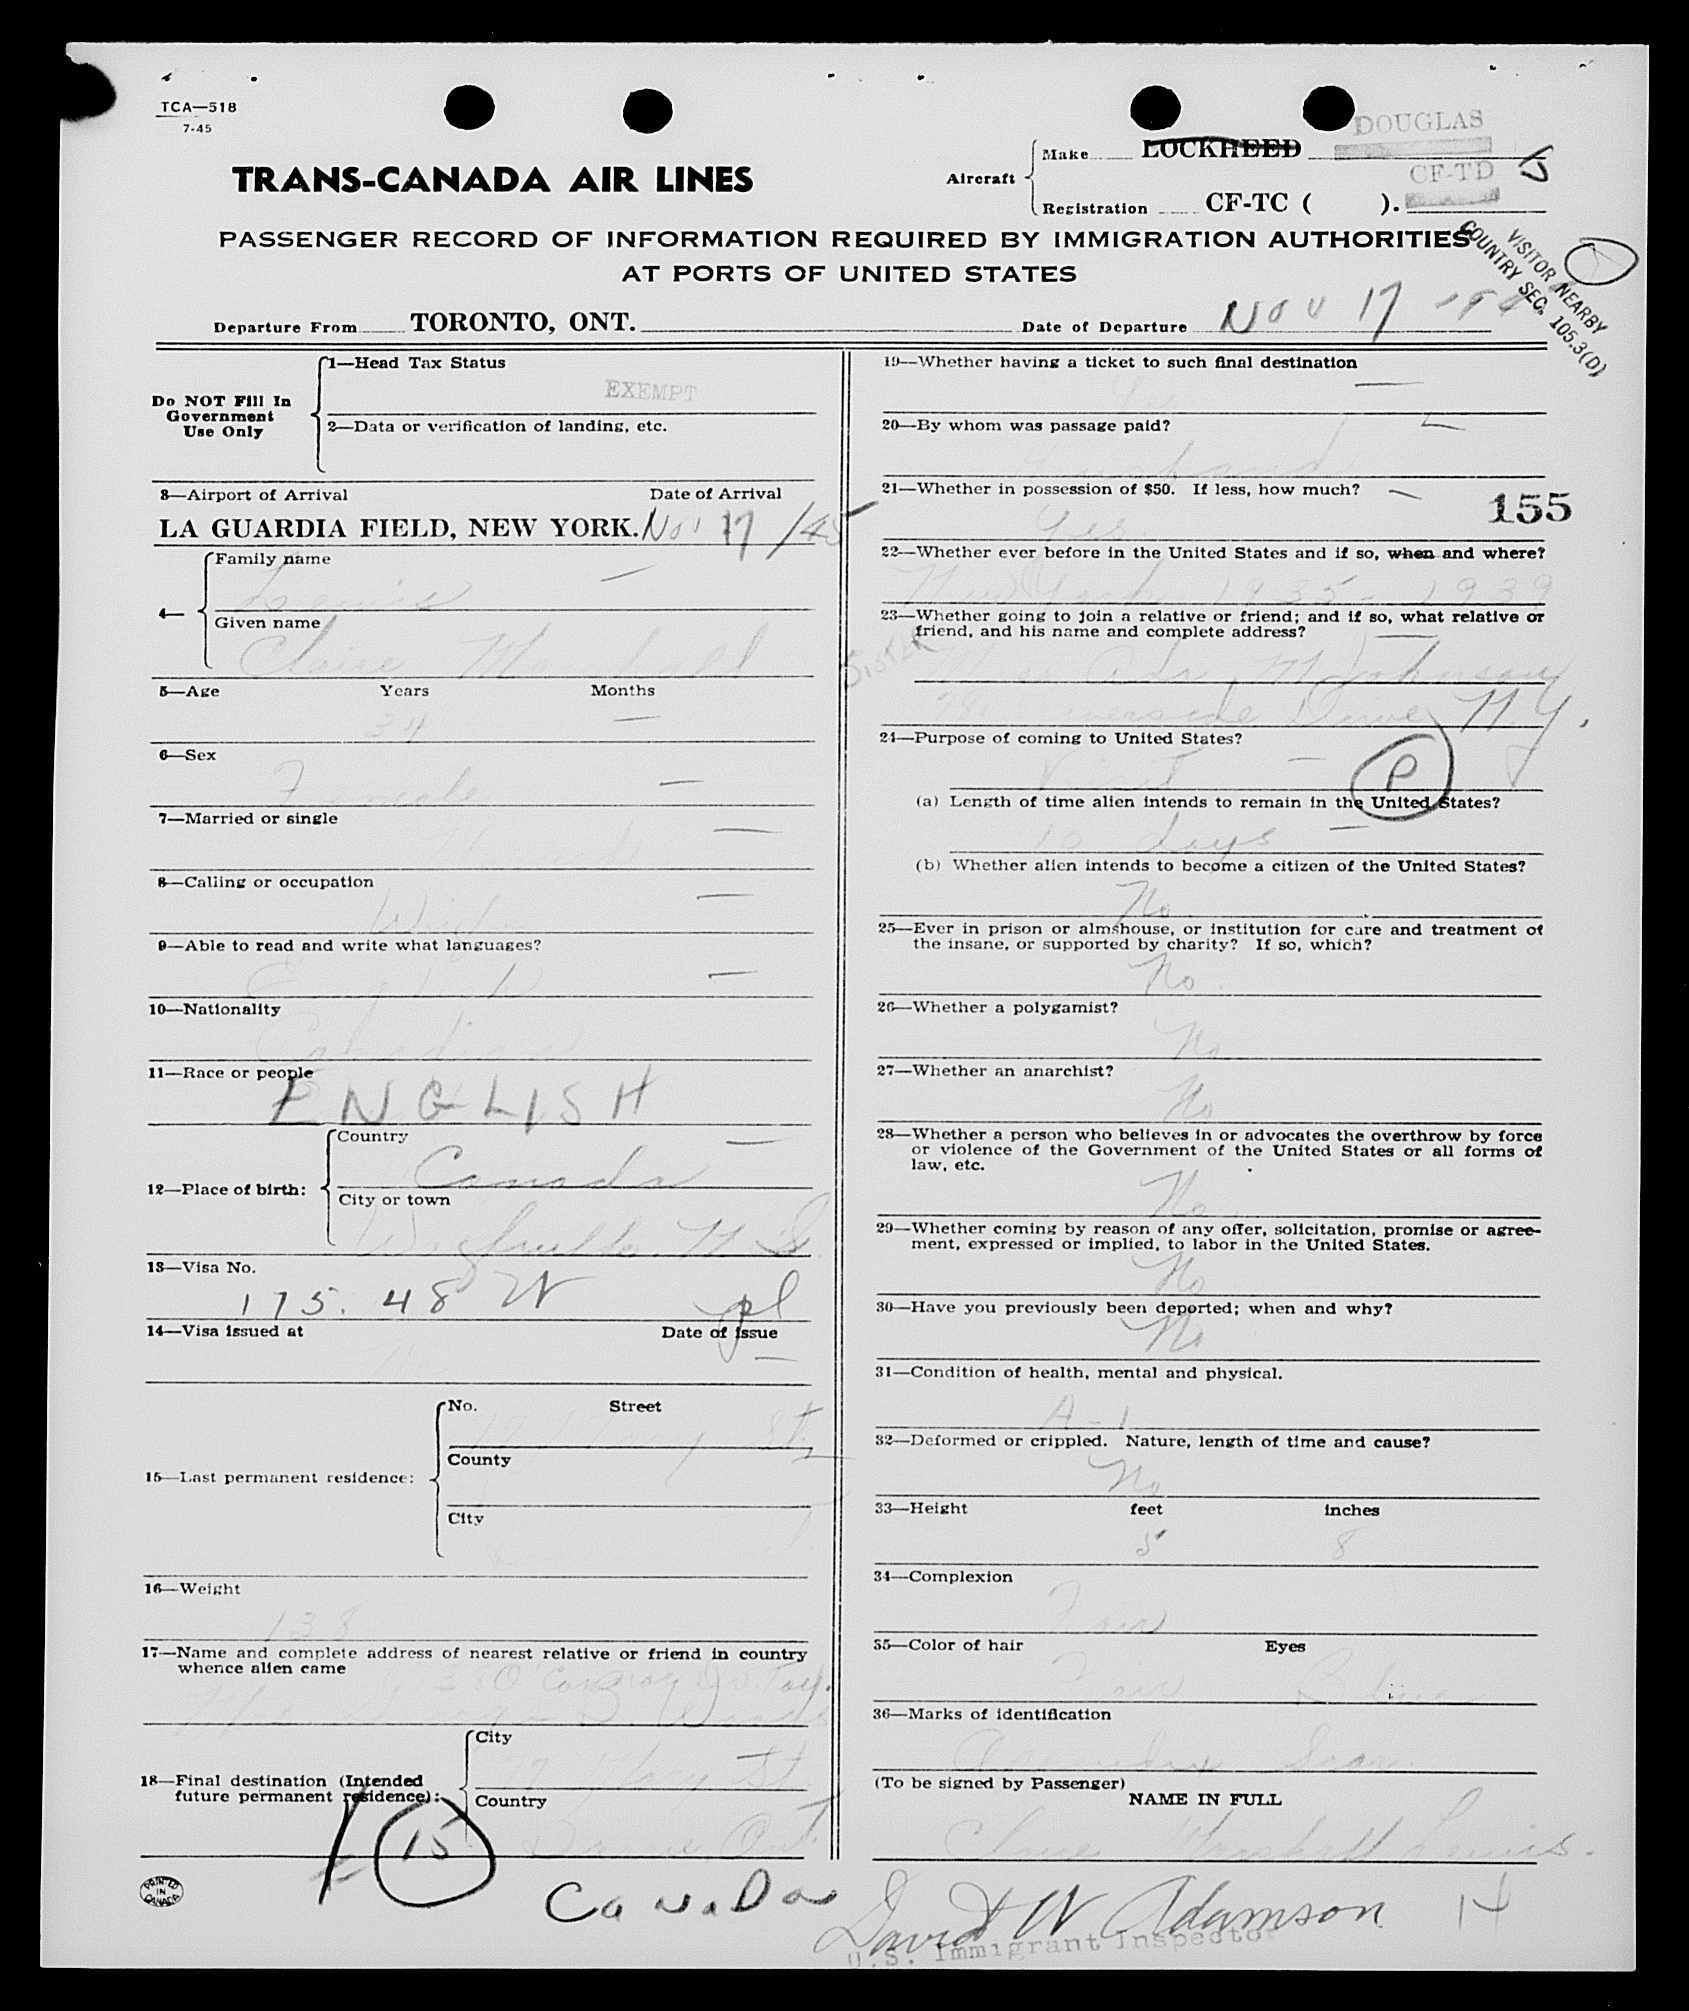 TCA—518
7-45
DOUGLAS
Make LOCKHEED
TRANS-CANADA AIR LINES
Aircraft
CF-TD
Registration CF-TC ( ).
PASSENGER RECORD OF INFORMATION REQUIRED BY IMMIGRATION AUTHORITIES
AT PORTS OF UNITED STATES
VISITOR NEARBY
COUNTRY SEC. 105.3(D)
Departure From TORONTO, ONT. Date of Departure Nov 17 194
Do NOT Fill In
Government
Use Only
1—Head Tax Status
EXEMPT
2—Data or verification of landing, etc.
3—Airport of Arrival Date of Arrival
LA GUARDIA FIELD, NEW YORK. Nov 17/45
4—
Family name
Lewis
Given name
Claire Marshall
5—Age Years Months
34
6—Sex
Female
7—Married or single
8—Calling or occupation
Wife
9—Able to read and write what languages?
English
10—Nationality
Canadian
11—Race or people
ENGLISH
12—Place of birth:
Country
Canada
City or town
N.S.
13—Visa No.
175.48 W
14—Visa issued at Date of issue
15—Last permanent residence:
No. Street
St.
County
City
16—Weight
138
17—Name and complete address of nearest relative or friend in country
whence alien came
18—Final destination (Intended
future permanent residence):
City
St
Country
Ont
15
Canada
PRINTED
IN
CANADA
19—Whether having a ticket to such final destination
Yes
20—By whom was passage paid?
Husband
21—Whether in possession of $50. If less, how much?
155
Yes
22—Whether ever before in the United States and if so, when and where?
New York 1935 - 1939
23—Whether going to join a relative or friend; and if so, what relative or
friend, and his name and complete address?
SISTER
M. Johnson
Riverside Drive, N.Y.
24—Purpose of coming to United States?
Visit
P
(a) Length of time alien intends to remain in the United States?
10 days
(b) Whether alien intends to become a citizen of the United States?
No
25—Ever in prison or almshouse, or institution for care and treatment of
the insane, or supported by charity? If so, which?
No.
26—Whether a polygamist?
No
27—Whether an anarchist?
No
28—Whether a person who believes in or advocates the overthrow by force
or violence of the Government of the United States or all forms of
law, etc.
No
29—Whether coming by reason of any offer, solicitation, promise or agree-
ment, expressed or implied, to labor in the United States.
No
30—Have you previously been deported; when and why?
No
31—Condition of health, mental and physical.
A-1
32—Deformed or crippled. Nature, length of time and cause?
No
33—Height feet inches
5 8
34—Complexion
Fair
35—Color of hair Eyes
Fair Blue
36—Marks of identification
Appendix Scar
(To be signed by Passenger)
NAME IN FULL
Claire Marshall Lewis.
David W Adamson 14
U.S. Immigrant Inspector